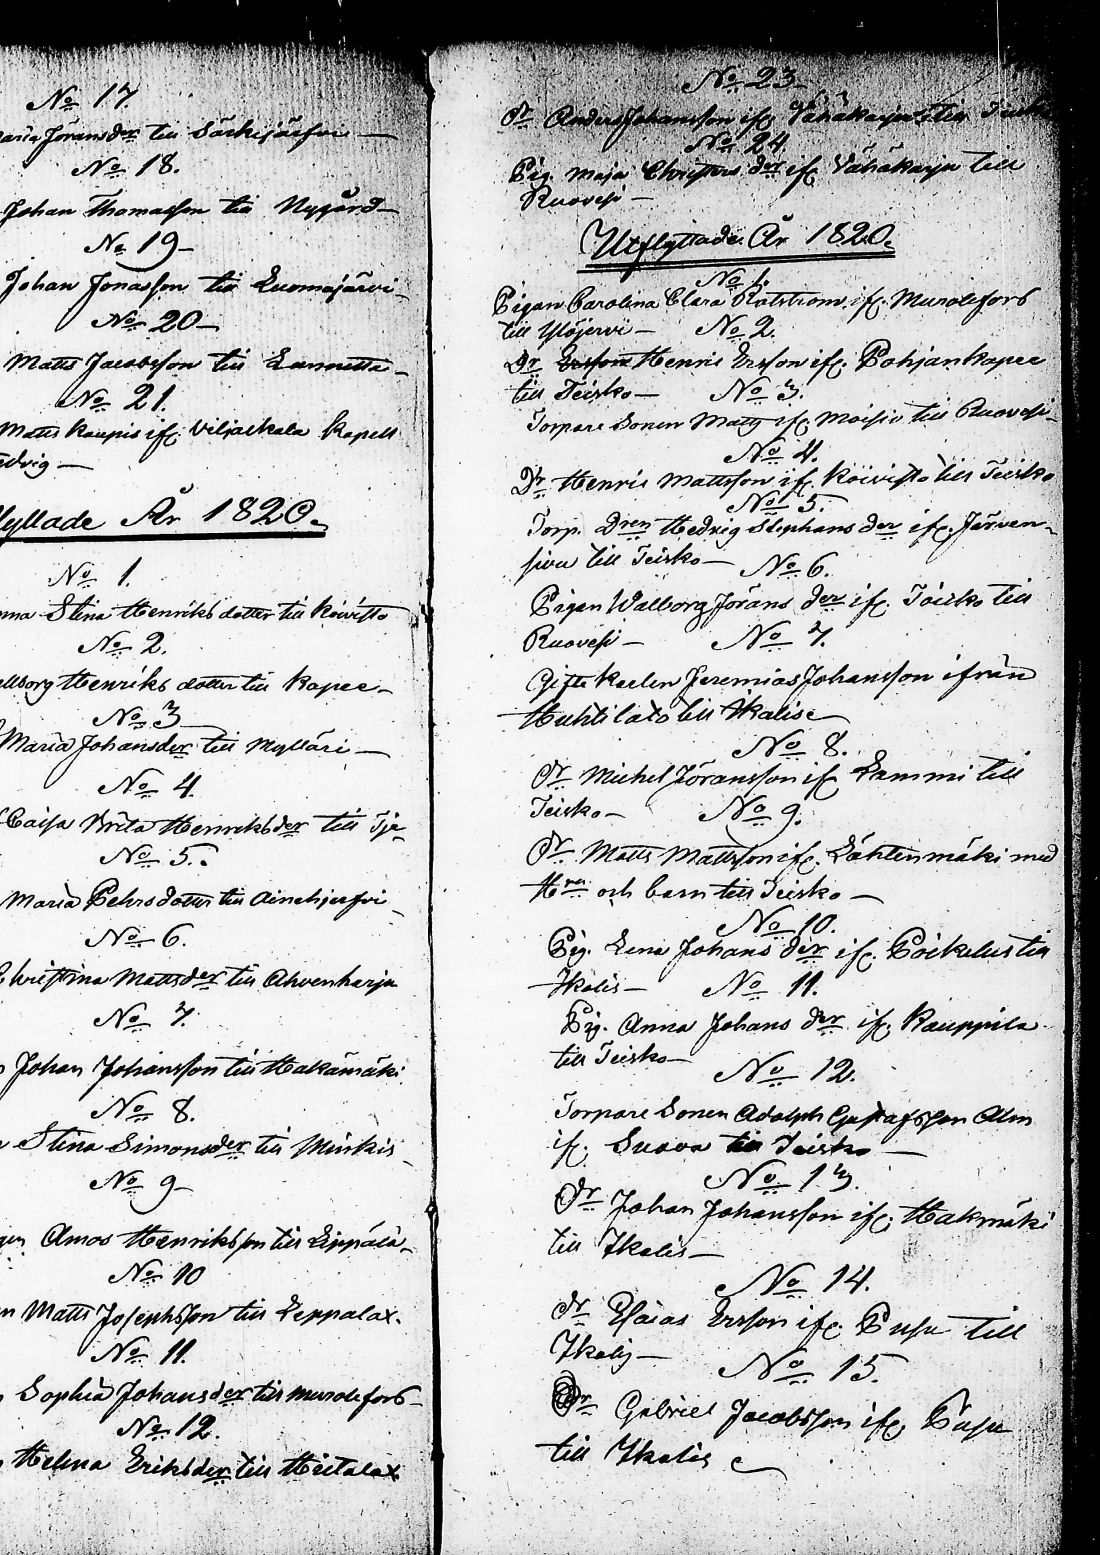 No 17.
Maria Jöransder till Särkijärfvi —
No 18.
Johan Thomasson till Nygård —
No 19 —
Johan Jonasson till Luomajärvi —
No 20 —
Matts Jacobsson till Lannetta —
No 21.
Matts Kaupis ifr. Viljackala Kapell
edvig —
flyttade År 1820.
No 1.
nna Stina Henriks dotter till Koivisto
No 2.
allborg Henriks dotter till Kapee —
No 3
Maria Johansder till Mylläri —
No 4.
Caisa Brita Henriksder till Tje-
No 5.
Maria Pehrs dotter till Ainehjerfvi —
No 6.
Christina Mattsder till Ahvenharju
No 7.
Johan Johansson till Hakamäki
No 8.
Stina Simonsder till Minkis —
No 9 —
gen Amos Henriksson till Leppälä —
No 10
n Matts Josephsson till Leppalax.
No 11.
Sophia Johansder till Murolefors —
No 12.
Helena Eriksder till Hietalax
No 23 —
Dr Anders Johansson ifr. Vähäkarju till Teisko
No 24
Pig. Maja Christers der ifr. Vähäkarju till
Ruovesi —
Utflyttade År 1820.
No 1.
Pigan Carolina Clara Rotström ifr. Murolefors
till Ylöjervi — No 2.
Dr Ersson Henric Ersson ifr. Pohjankapee
till Teisko — No 3.
Torpare Sonen Matts ifr. Moisio till Ruovesi —
No 4.
Dr Henric Mattsson ifr. Koivisto till Teisko
No 5.
Torp. Dren Hedvig Stephans der ifr. Järven-
sivu till Teisko — No 6.
Pigan Walborg Jörans der ifr. Teisko till
Ruovesi — No 7.
Gifte Karlen Jeremias Johansson ifrån
Huhtilato till Ikalis —
No 8.
Dr Michel Jöransson ifr. Lammi till
Teisko — No 9.
Dr Matts Mattsson ifr. Lähtenmäki med
Hru och barn till Teisko —
No 10.
Pig. Lena Johans der ifr. Poikelus till
Ikalis — No 11.
Pig. Anna Johans der ifr. Kauppila
till Teisko —
No 12.
Torpare Sonen Adolph Gustafsson Alm
ifr. Suava till Teisko —
No 13.
Dr Johan Johansson ifr. Hakamäki
till Ikalis —
No 14.
Dr Esaias Ersson ifr. Pusu till
Ikalis — No 15.
Dr Gabriel Jacobsson ifr. Pusu
till Ikalis